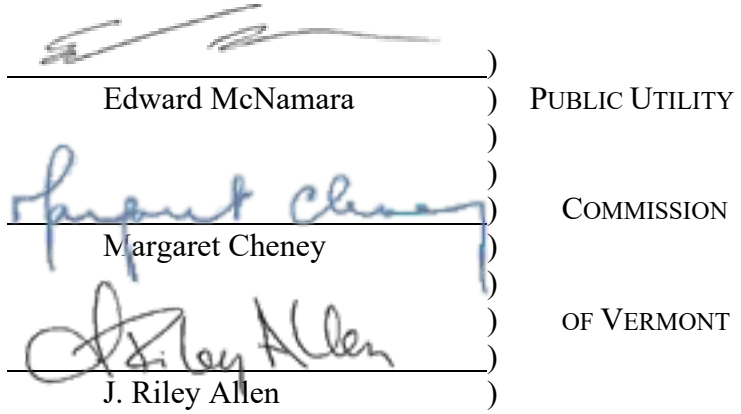 )
Edward McNamara ) PUBLIC UTILITY
)
)
Margaret Cheney ) COMMISSION
Margaret Cheney )
)
J Riley Allen ) OF VERMONT
)
J. Riley Allen )